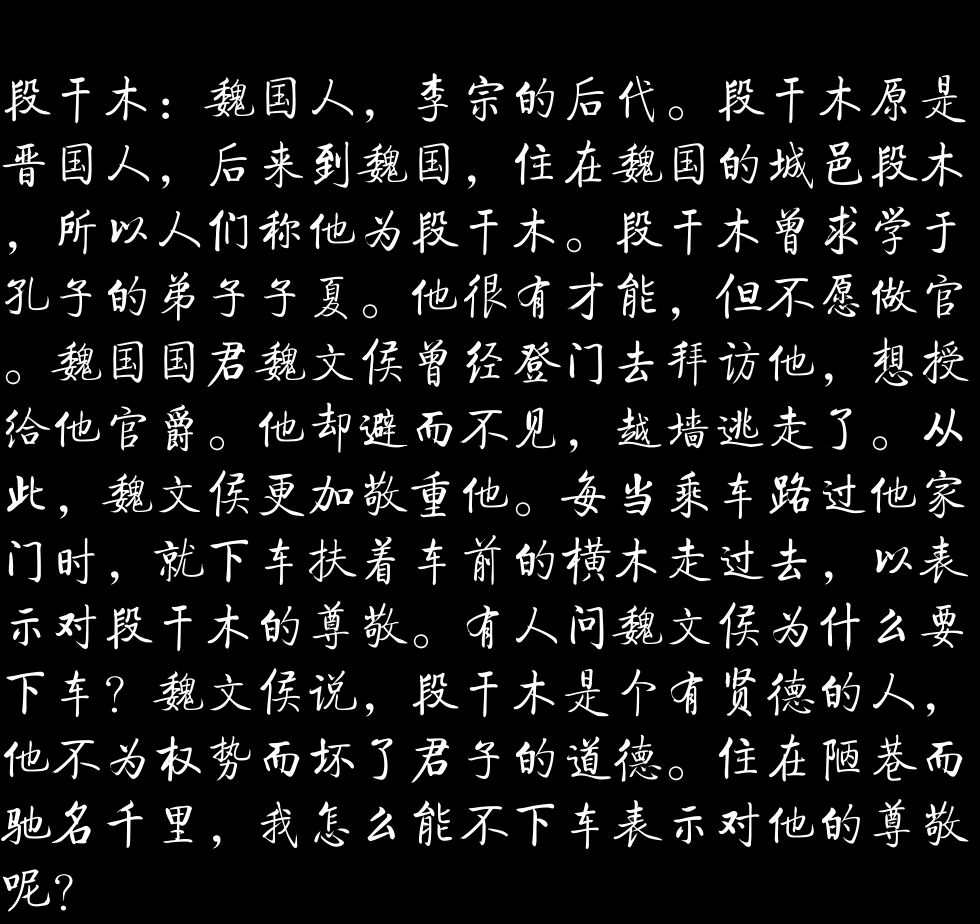 段干木：魏国人，李宗的后代。段干木原是
晋国人，后来到魏国，住在魏国的城邑段木
，所以人们称他为段干木。段干木曾求学于
孔子的弟子子夏。他很有才能，但不愿做官
。魏国国君魏文侯曾经登门去拜访他，想授
给他官爵。他却避而不见，越墙逃走了。从
此，魏文侯更加敬重他。每当乘车路过他家
门时，就下车扶着车前的横木走过去，以表
示对段干木的尊敬。有人问魏文侯为什么要
下车？魏文侯说，段干木是个有贤德的人，
他不为权势而坏了君子的道德。住在陋巷而
驰名千里，我怎么能不下车表示对他的尊敬
呢？